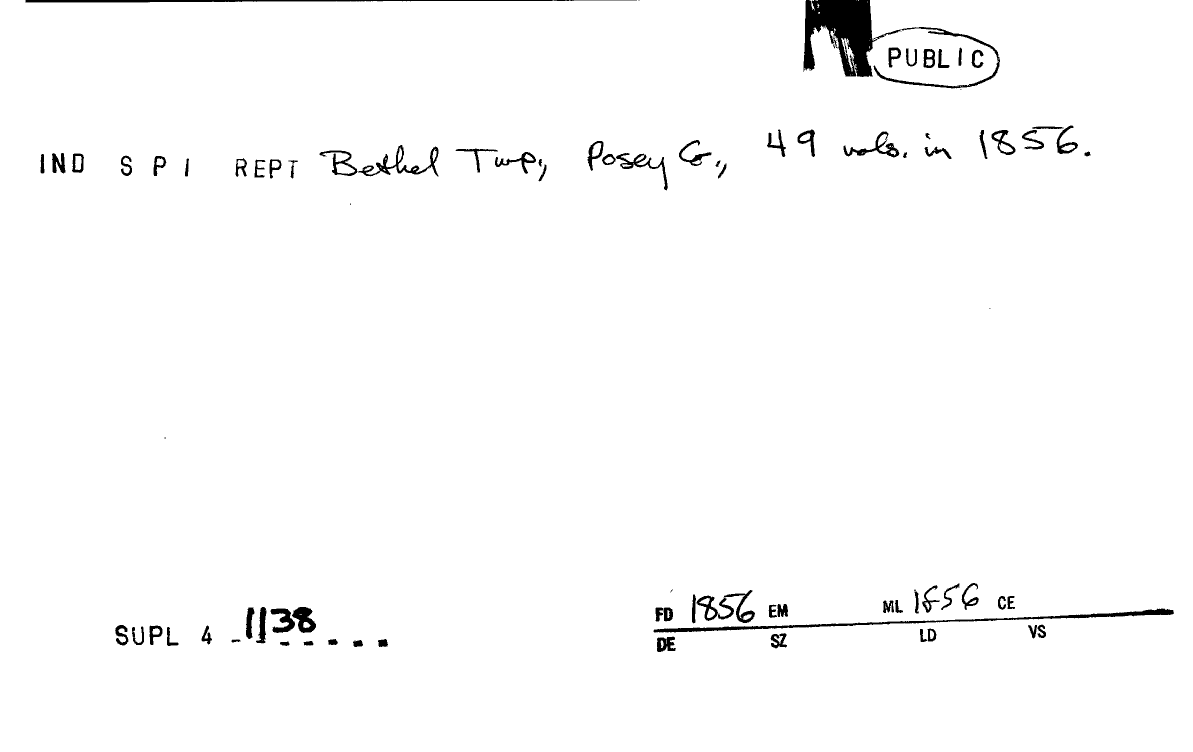 PUBLIC
IND S P I REPT Bethel Twp., Posey Co., 49 vols. in 1856.
SUPL 4 1138
FD 1856 EM ML 1856 CE
DE SZ LD VS